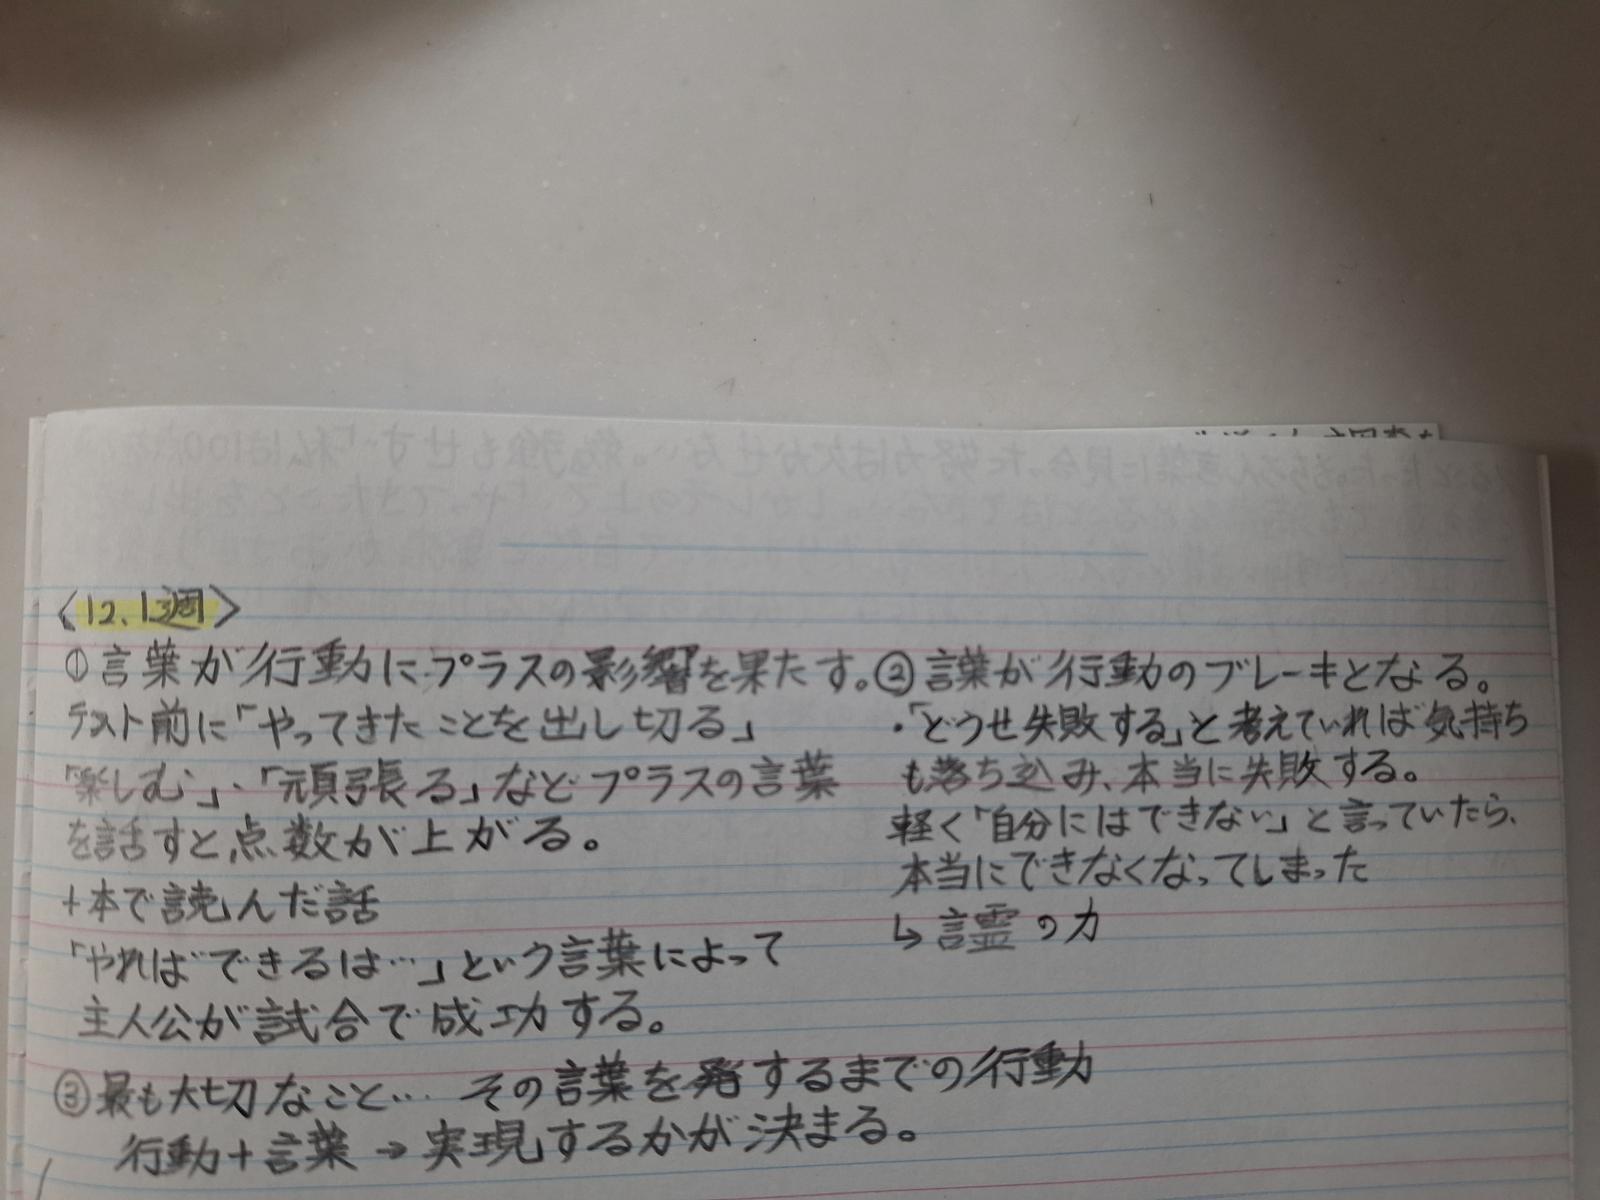 〈12、13週〉
①言葉が行動にプラスの影響を果たす。
テスト前に「やってきたことを出し切る」
「楽しむ」、「頑張る」などプラスの言葉
を話すと、点数が上がる。
+本で読んだ話
「やればできるは…」という言葉によって
主人公が試合で成功する。
②言葉が行動のブレーキとなる。
・「どうせ失敗する」と考えていれば気持ち
も落ち込み、本当に失敗する。
軽く「自分にはできない」と言っていたら、
本当にできなくなってしまった
↳言霊の力
③最も大切なこと… その言葉を発するまでの行動
行動+言葉→実現するかが決まる。